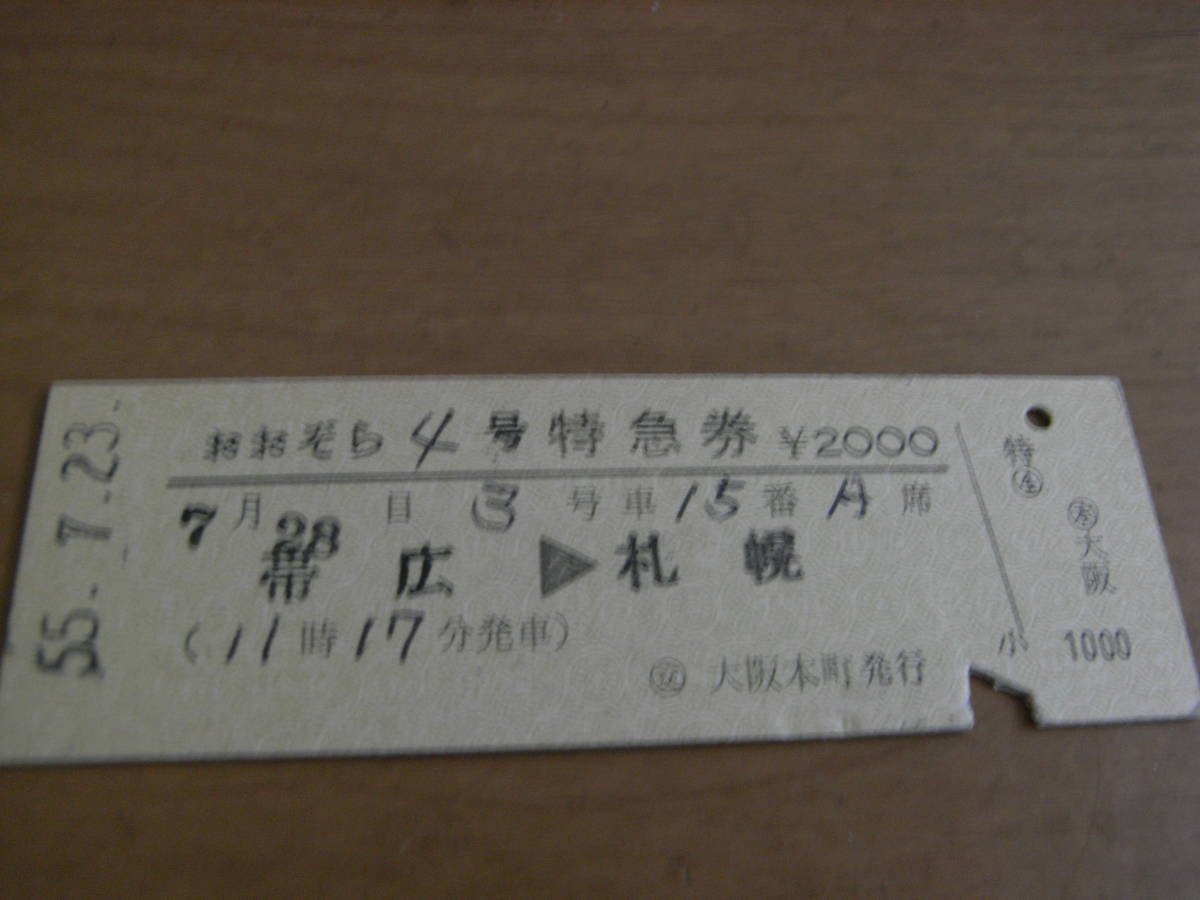 55.-7.23.-
おおぞら 4号特急券 ¥2000
7月28日 3号車15番A席
帯広▶札幌
(11時17分発車)
大阪本町発行
特
大阪
小
1000